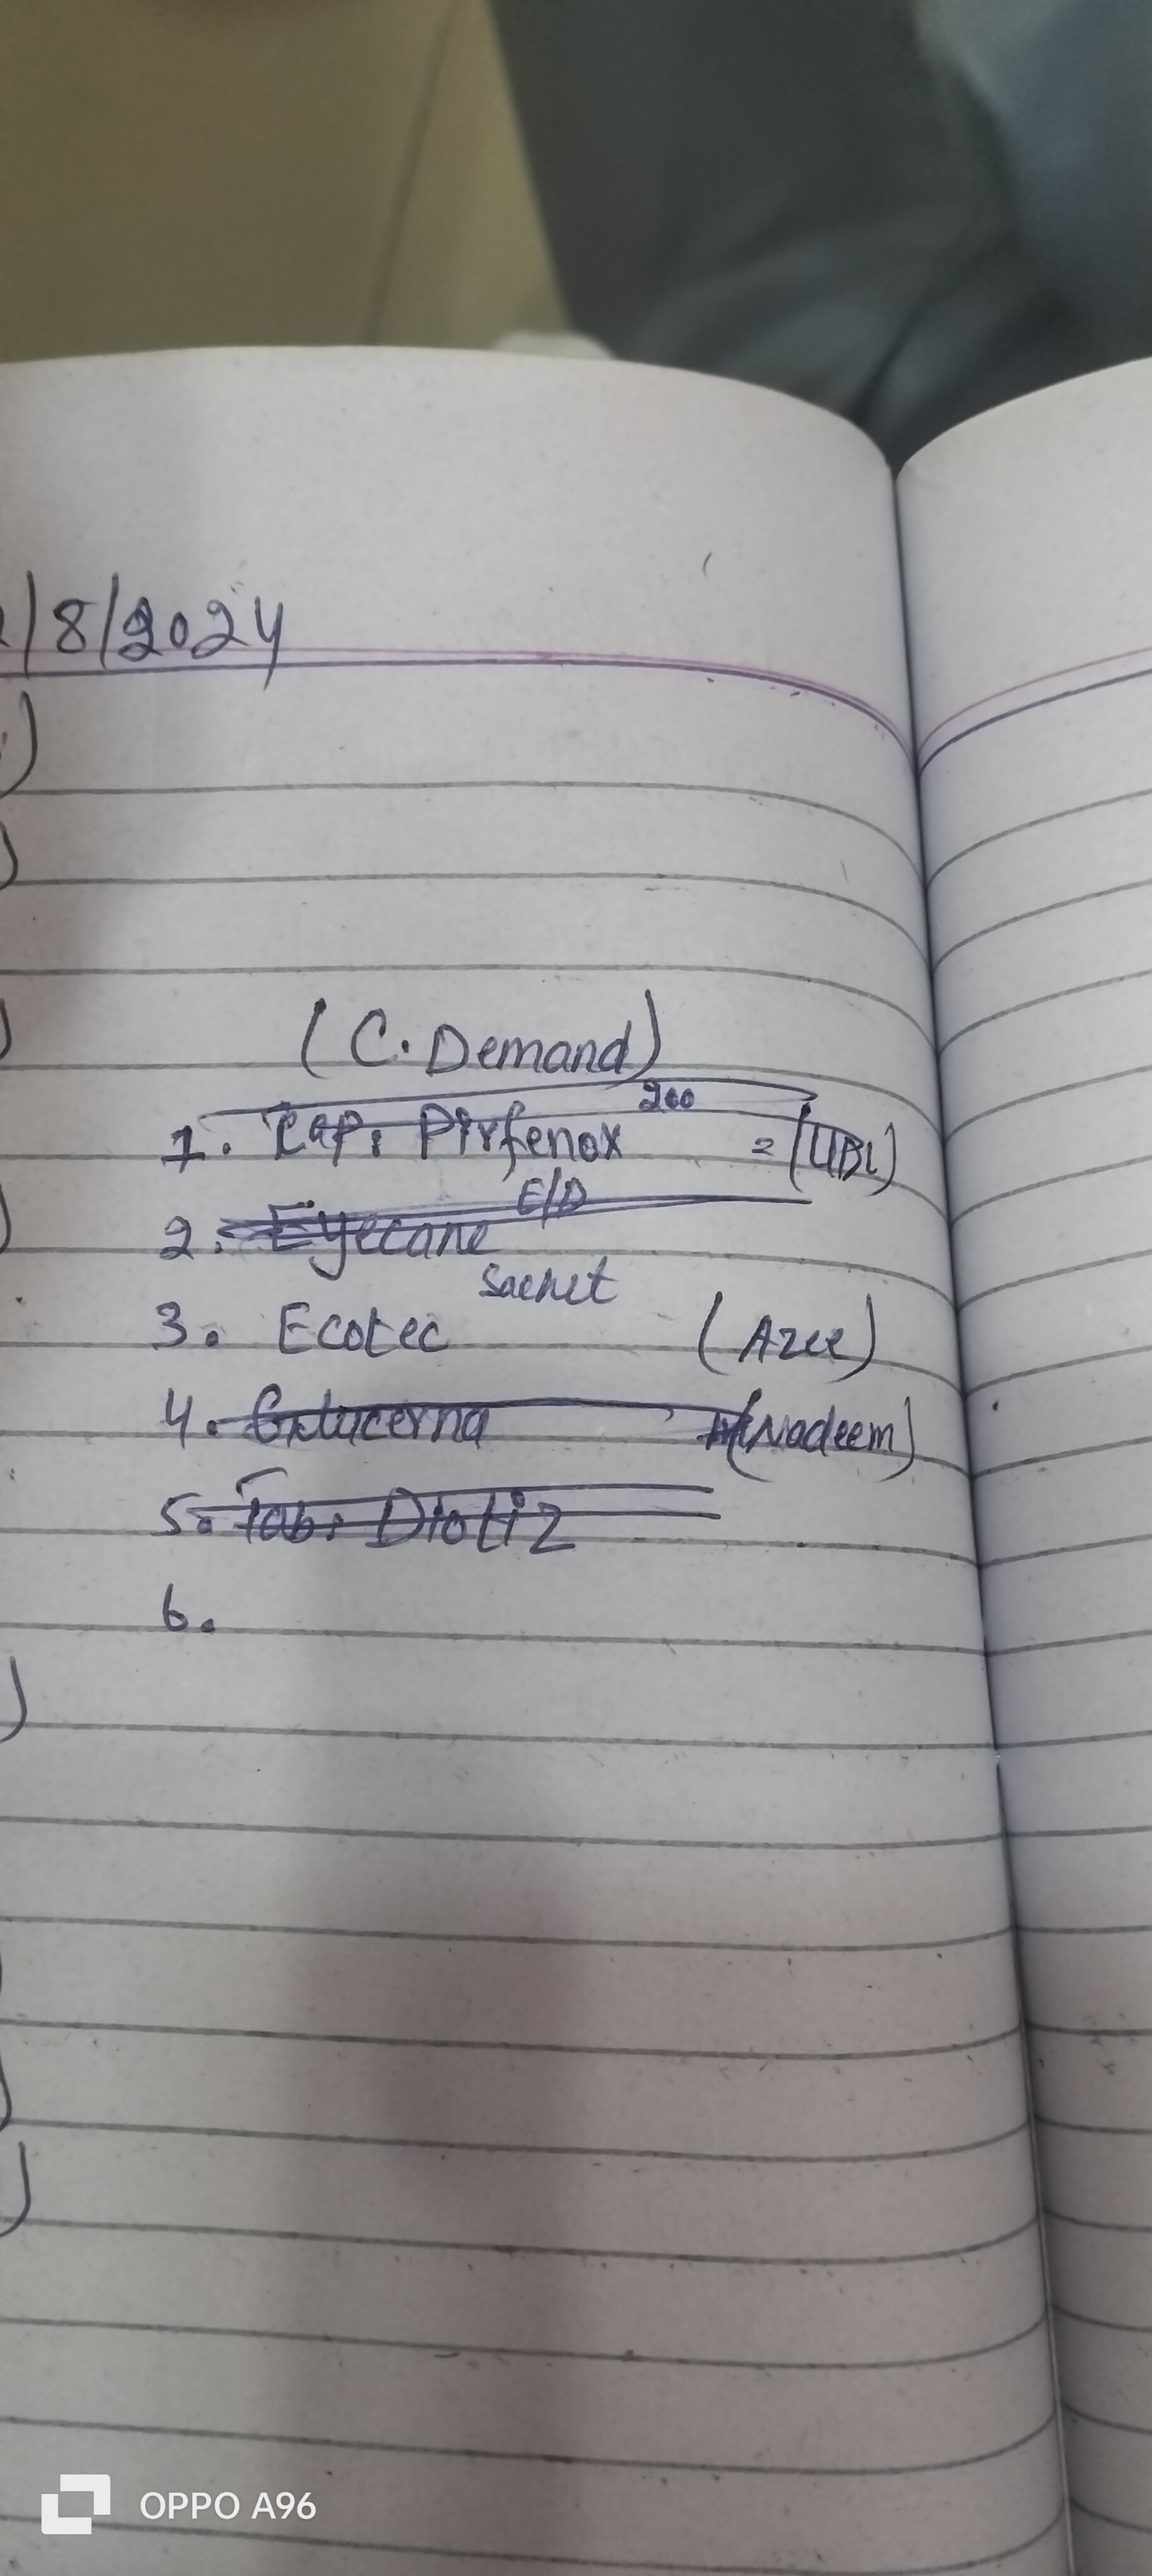 /8/2024
(C. Demand)
1. Cap. Pirfenox 200 = (UBL)
2. Eyecane E/D
3. Ecotec Sachet (Azee)
4. Glucerna (Nadeem)
5. Tab. Diotiz
6.
OPPO A96